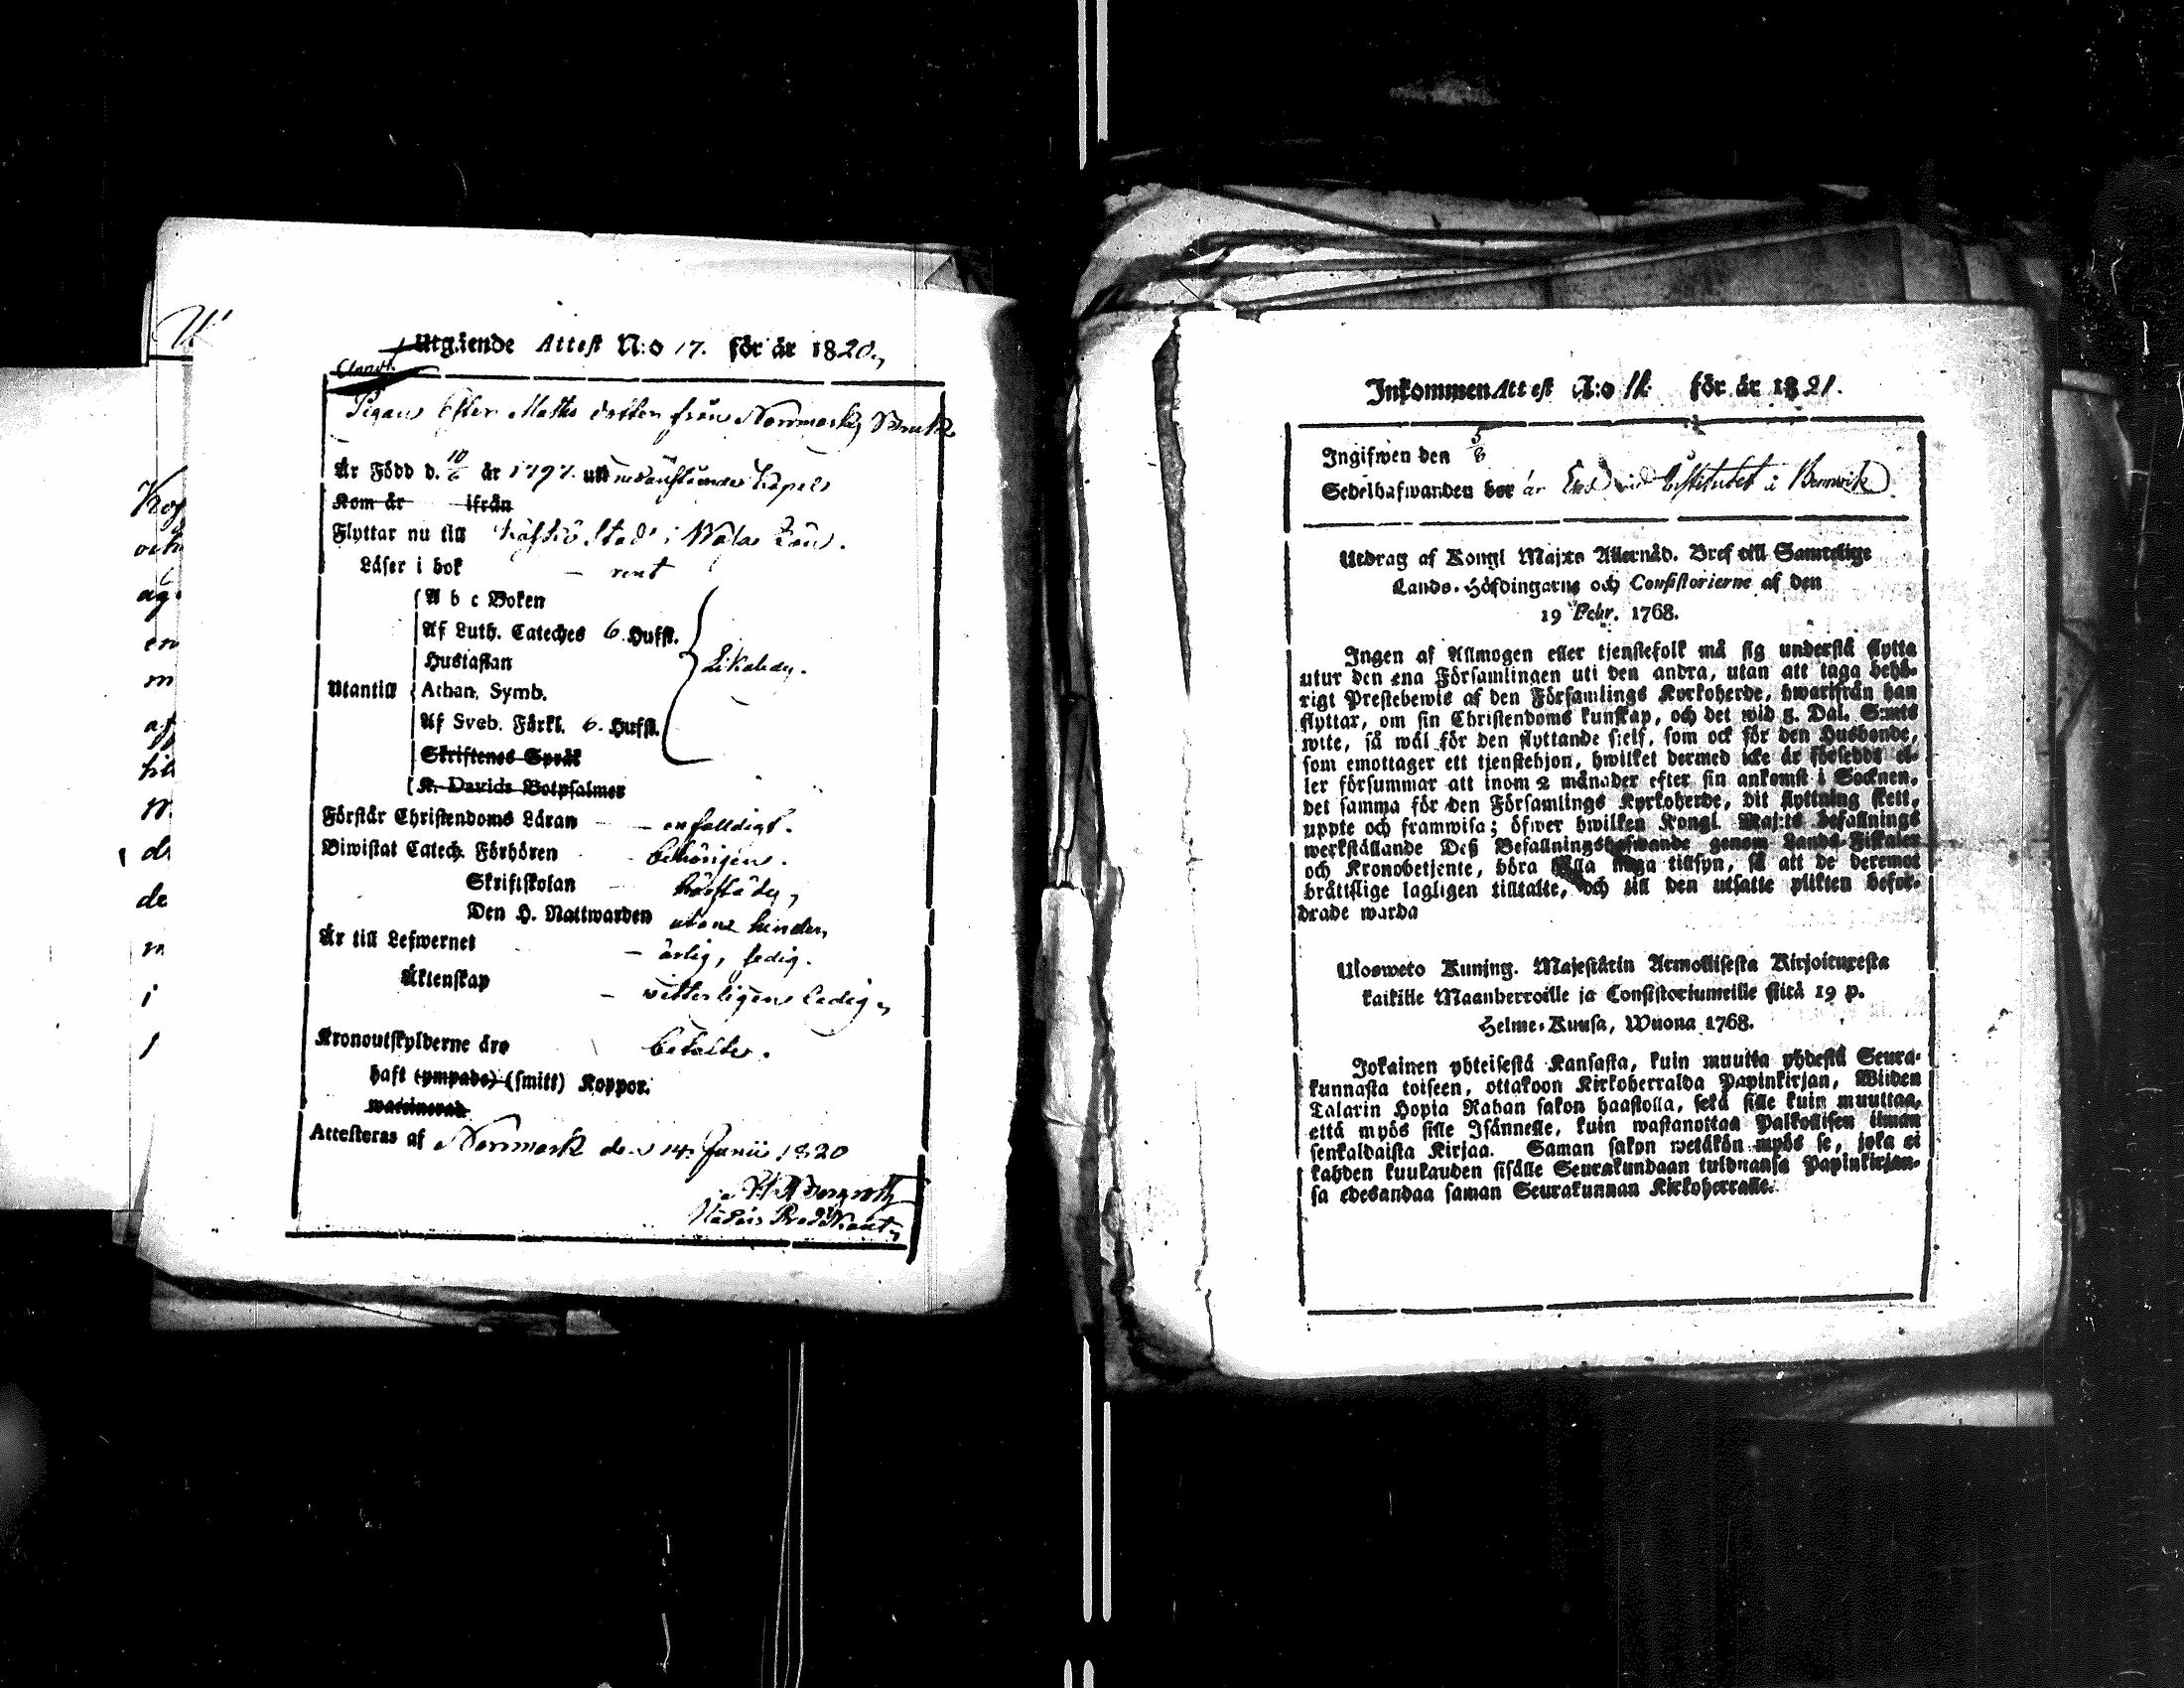 Utgående Attest N:o 17. för år 1820.
Pigan Ester Maths dotter från Norrmarks Bruk
Är Född d. 10/6 år 1797. uti
Kom år ifrån
Flyttar nu till Stad i Wasa Län.
Läser i bok - rent
A b c Boken
Af Luth. Cateches 6. Hufst.
Hustaflan
Utantill Athan. Symb.
Af Sveb. Förkl. 6. Hufst.
Skriftenes Språk
K. Davids Botpsalmer
Förstår Christendoms Läran - enfaldigt.
Biwistat Catech. Förhören - behörigen.
Skriftskolan
Den H. Nattwarden utan hinder,
Är till Lefwernet - ärlig, sedig.
Äktenskap - vitterligen ledig,
Kronoutskylderne äro betalte.
haft (ympade) (smitt) Koppor.
waccinerad
Attesteras af Norrmark den 14. Junii 1820
Inkommen Attest N:o för år 1821.
Ingifwen den 5/8
Sedelhafwanden bor är
Utdrag af Kongl Maj:ts Allernåd. Bref till Samtelige
Lands-Höfdingarne och Consistorierne af den
19 Febr. 1768.
Ingen af Allmogen eller tjenstefolk må sig understå flytta
utur den ena Församlingen uti den andra, utan att taga behö-
rigt Prestebewis af den Församlings Kyrkoherde, hwarifrån han
flyttar, om sin Christendoms kunskap, och det wid 5. Dal. S:mts
wite, så wäl för den flyttande sielf, som ock för den Husbonde,
som emottager ett tjenstehjon, hwilket dermed icke är försedde el-
ler försummar att inom 2 månader efter sin ankomst i Socknen,
det samma för den Församlings Kyrkoherde, dit flyttning skett,
uppte och framwisa; öfwer hwilken Kongl. Maj:ts befallnings
werkställande Deß Befallningshafwande genom Lands-Fiskaler
och Kronobetjente, böra hålla noga tillsyn, så att de deremot
bråttslige lagligen tilltalte, och till den utsatte plikten befor-
drade warda
Ulosweto Kuning. Majestätin Armollisesta Kirjoituxesta
kaikille Maanherroille ja Consistoriumeille siitä 19 p.
Helme-Kuusa, Wuona 1768.
Jokainen yhteisestä Kansasta, kuin muutta yhdestä Seura-
kunnasta toiseen, ottakoon Kirkoherralda Papinkirjan, Wiiden
Talarin Hopia Rahan sakon haastolla, sekä sille kuin muuttaa,
että myös sille Isännelle, kuin wastanottaa Palkollisen ilman
senkaldaista Kirjaa. Saman sakon wetäkön myös se, joka ei
kahden kuukauden sisälle Seurakundaan tuldnansa Papinkirjan-
sa edesandaa saman Seurakunnan Kirkoherralle.